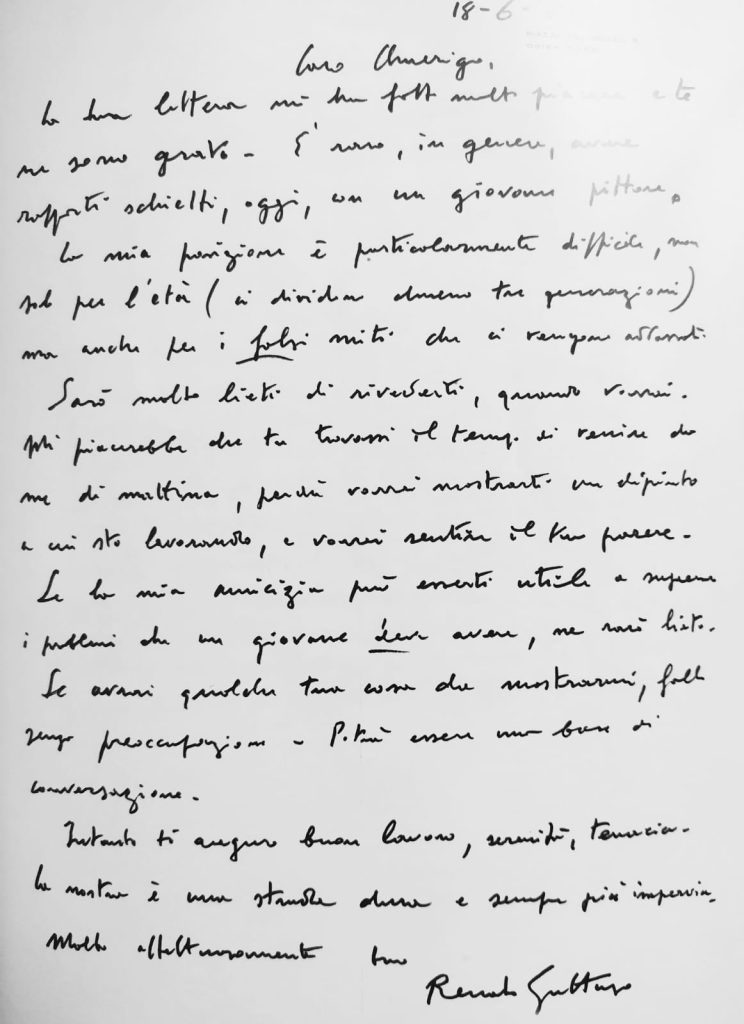 18-6-
Caro Amerigo,
La tua lettera mi ha fatto molto piacere e te
ne sono grato - E' raro, in genere, avere
rapporti schietti, oggi, con un giovane pittore.
La mia posizione è particolarmente difficile, non
solo per l'età (ci dividono almeno tre generazioni)
ma anche per i falsi miti che ci vengono addossati.
Sarò molto lieto di rivederti, quando vorrai.
Mi piacerebbe che tu trovassi il tempo di venire da
me di mattina, perché vorrei mostrarti un dipinto
a cui sto lavorando, e vorrei sentire il tuo parere -
Se la mia amicizia può esserti utile a superare
i problemi che un giovane deve avere, ne sarò lieto.
Se avrai qualche tua cosa da mostrarmi, fallo
senza preoccupazione - Potrà essere una base di
conversazione -
Intanto ti auguro buon lavoro, serenità, tenacia -
La nostra è una strada dura e sempre più impervia.
Molto affettuosamente tuo
Renato Guttuso